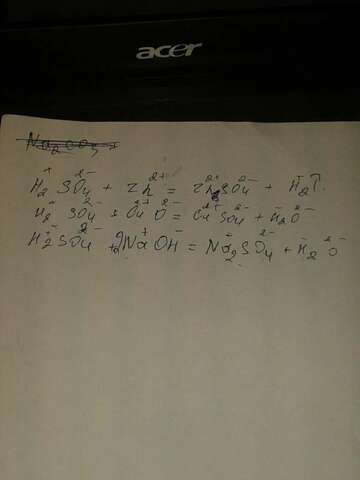 acer
Na₂CO₃
H₂⁺ SO₄²⁻ + Zn²⁺ = Zn²⁺SO₄²⁻ + H₂⁻↑.
H₂⁺ SO₄²⁻ + Cu²⁺O²⁻ = Cu²⁺SO₄²⁻ + H₂⁻O⁻
H₂⁺SO₄²⁻ + 2Na⁺OH⁻ = Na₂⁺SO₄²⁻ + H₂⁻O⁻